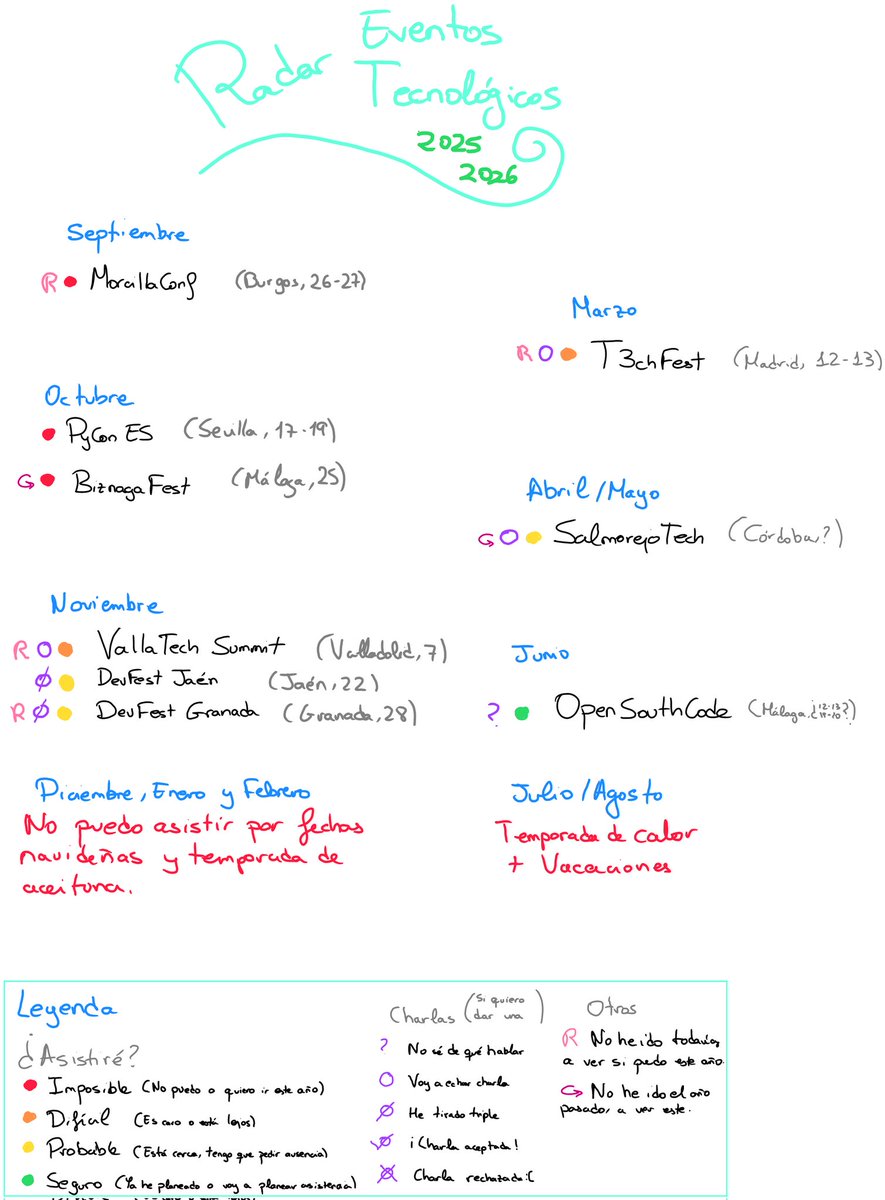 Radar Eventos
Tecnológicos
2025
2026
Septiembre
R MorcillaConf (Burgos, 26-27)
Octubre
PyCon ES (Sevilla, 17-19)
BiznagaFest (Málaga, 25)
Noviembre
R O VallaTech Summit (Valladolid, 7)
Ø DevFest Jaén (Jaén, 22)
R Ø DevFest Granada (Granada, 28)
Diciembre, Enero y Febrero
No puedo asistir por fechas
navideñas y temporada de
aceituna.
Marzo
R O T3chFest (Madrid, 12-13)
Abril/Mayo
O SalmorejoTech (Córdoba?)
Junio
? OpenSouthCode (Málaga, ¿12-13 19-20?)
Julio/Agosto
Temporada de calor
+ Vacaciones
Leyenda
¿Asistiré?
Imposible (No puedo o quiero ir este año)
Difícil (Es caro o está lejos)
Probable (Está cerca, tengo que pedir ausencia)
Seguro (Ya he planeado o voy a planear asistencia)
Charlas (Si quiero dar una)
? No sé de qué hablar
O Voy a echar charla
Ø He tirado triple
¡Charla aceptada!
Charla rechazada :(
Otros
R No he ido todavía,
a ver si puedo este año.
No he ido el año
pasado, a ver este.